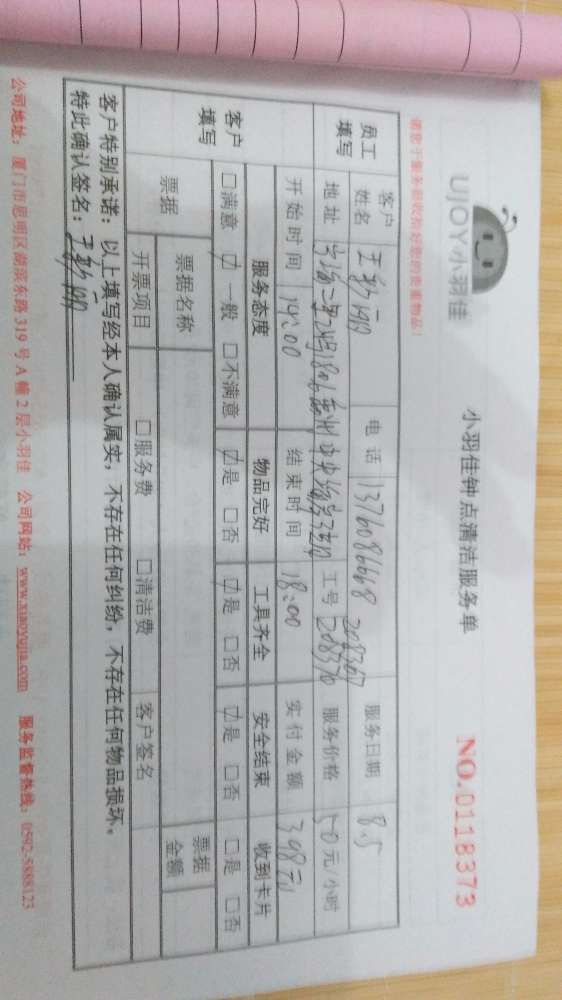 UJOY小羽佳
小羽佳钟点清洁服务单
NO.0118373
请您于服务前收拾好您的贵重物品！
员工填写
客户姓名
电话 13760886668
服务日期 8.5
地址
工号 208367 208370
服务价格 50元/小时
开始时间 14:00
结束时间 18:00
实付金额 348元
客户填写
服务态度 物品完好 工具齐全 安全结束 收到卡片
□满意 ☑一般 □不满意 ☑是 □否 ☑是 □否 ☑是 □否 □是 □否
票据 票据名称 票据金额
开票项目 □服务费 □清洁费 客户签名
客户特别承诺：以上填写经本人确认属实，不存在任何纠纷，不存在任何物品损坏。
特此确认签名：
公司地址：厦门市思明区湖滨东路319号A幢2层小羽佳 公司网站：www.xiaoyujia.com 服务监督热线：0592-5888123